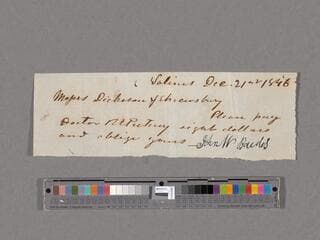 Salines Dec. 21st 1846
Messrs Dickeson & Shrewsbury
Please pay
Doctor R Putney eight dollars
and oblige yours
John W